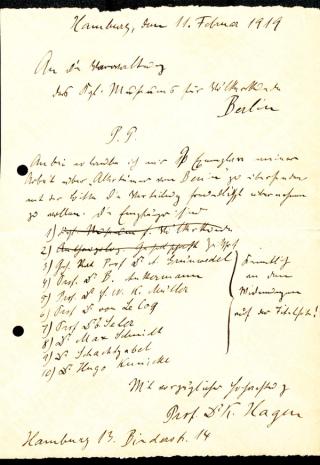 Hamburg, den 11. Februar 1919
An die Verwaltung
des Kgl. Museums für Völkerkunde
Berlin
P. P.
Anbei erlaube ich mir Exemplare meiner
Arbeit über „Altertümer von Benin“ zu übersenden
mit der Bitte die Verteilung freundlichst übernehmen
zu wollen. Die Empfänger sind
1) Kgl. Museum f. Völkerkunde
2) Anthropolog. Gesellschaft
3) Geh. Rat Prof. Dr. A. Grünwedel
4) Prof. Dr. B. Ankermann
5) Prof. Dr. F. W. K. Müller
6) Prof. Dr. von Le Coq
7) Prof. Dr. E. Seler
8) Dr. Max Schmidt
9) Dr. Schachtzabel
10) Dr. Hugo Kunicke
Kenntlich
an den
Widmungen
auf der Titelseite!
Mit vorzüglicher Hochachtung
Prof. Dr. K. Hagen
Hamburg 13. Binderstr. 14